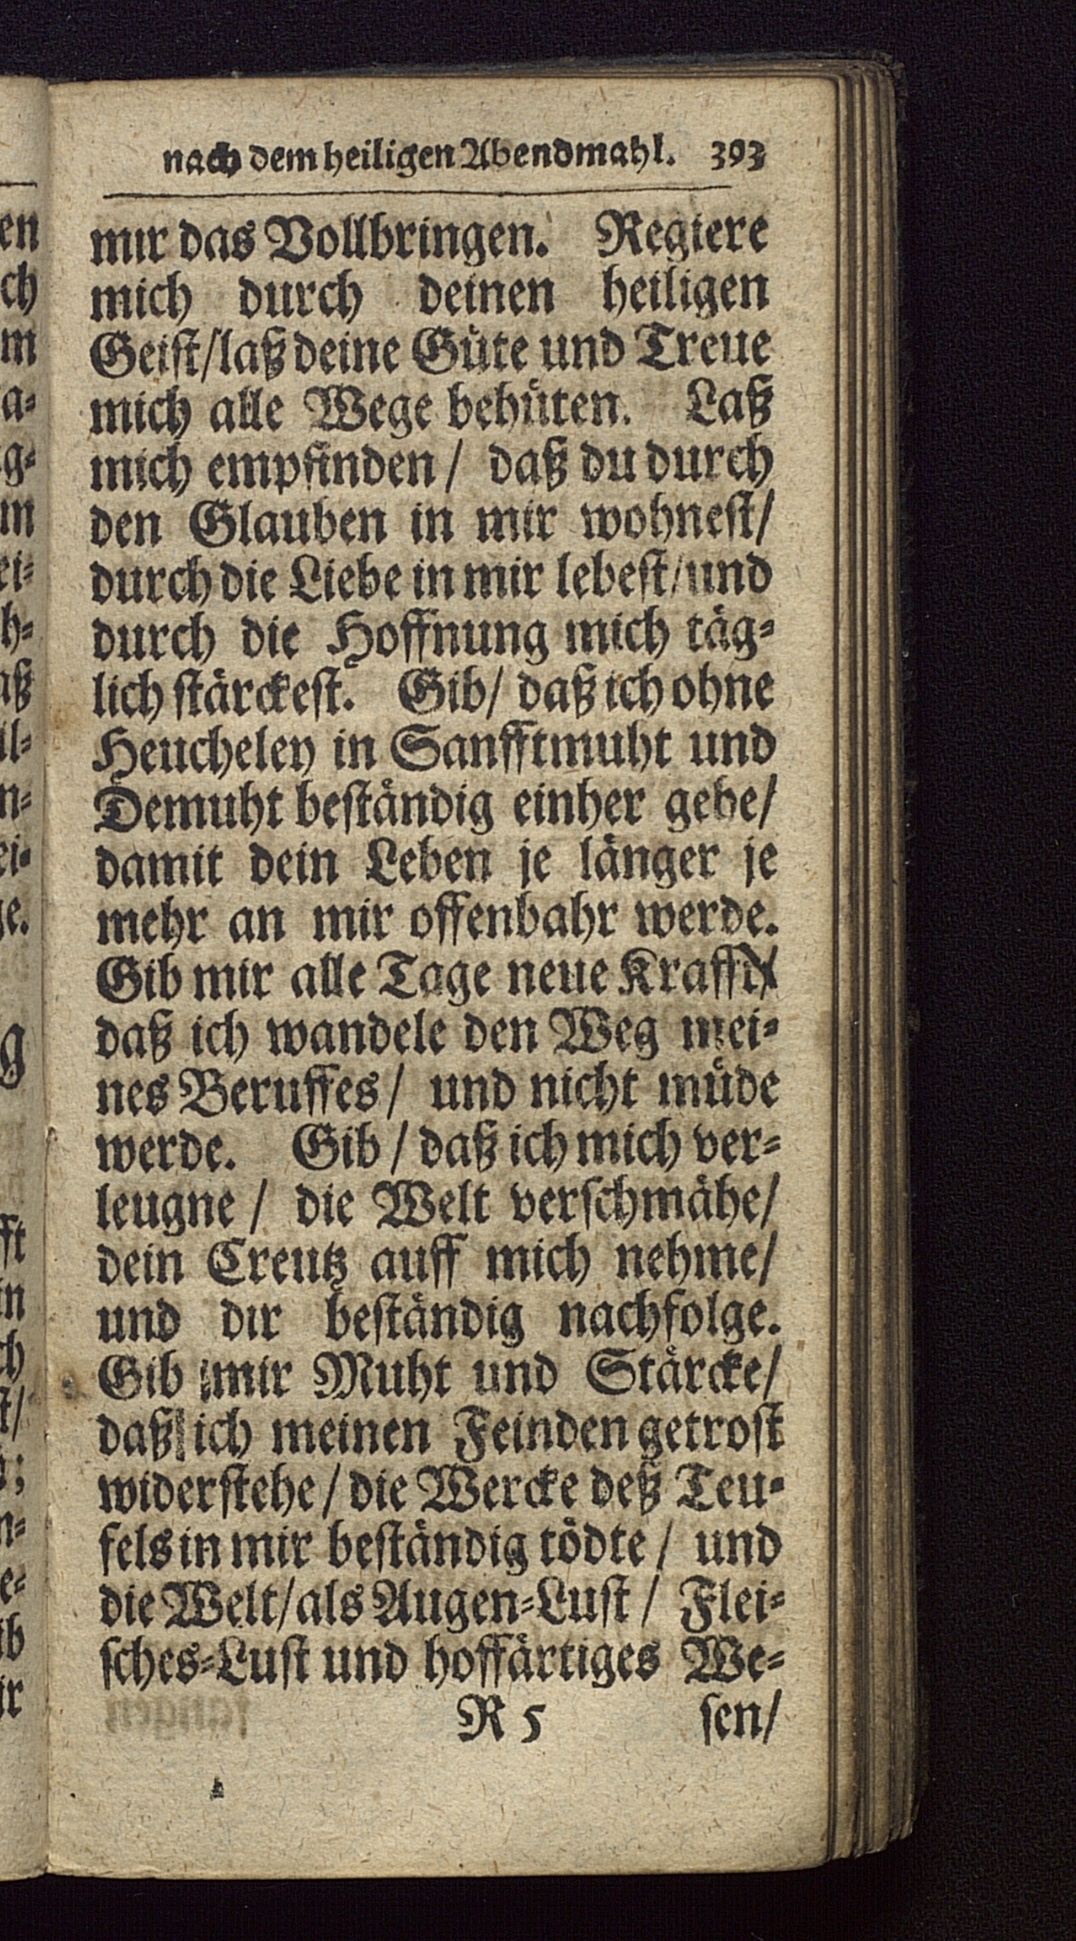 nach dem heiligen Abendmahl. 393
mir das Vollbringen. Regiere
mich durch deinen heiligen
Geist/ laß deine Güte und Treue
mich alle Wege behüten. Laß
mich empfinden/ daß du durch
den Glauben in mir wohnest/
durch die Liebe in mir lebest/ und
durch die Hoffnung mich täg-
lich stärckest. Gib/ daß ich ohne
Heucheley in Sanfftmuht und
Demuht beständig einher gehe/
damit dein Leben je länger je
mehr an mir offenbahr werde.
Gib mir alle Tage neue Krafft/
daß ich wandele den Weg mei-
nes Beruffes/ und nicht müde
werde. Gib/ daß ich mich ver-
leugne/ die Welt verschmähe/
dein Creutz auff mich nehme/
und dir beständig nachfolge.
Gib mir Muht und Stärcke/
daß ich meinen Feinden getrost
widerstehe/ die Wercke deß Teu-
fels in mir beständig tödte/ und
die Welt/ als Augen-Lust/ Flei-
sches-Lust und hoffärtiges We-
R 5 sen/